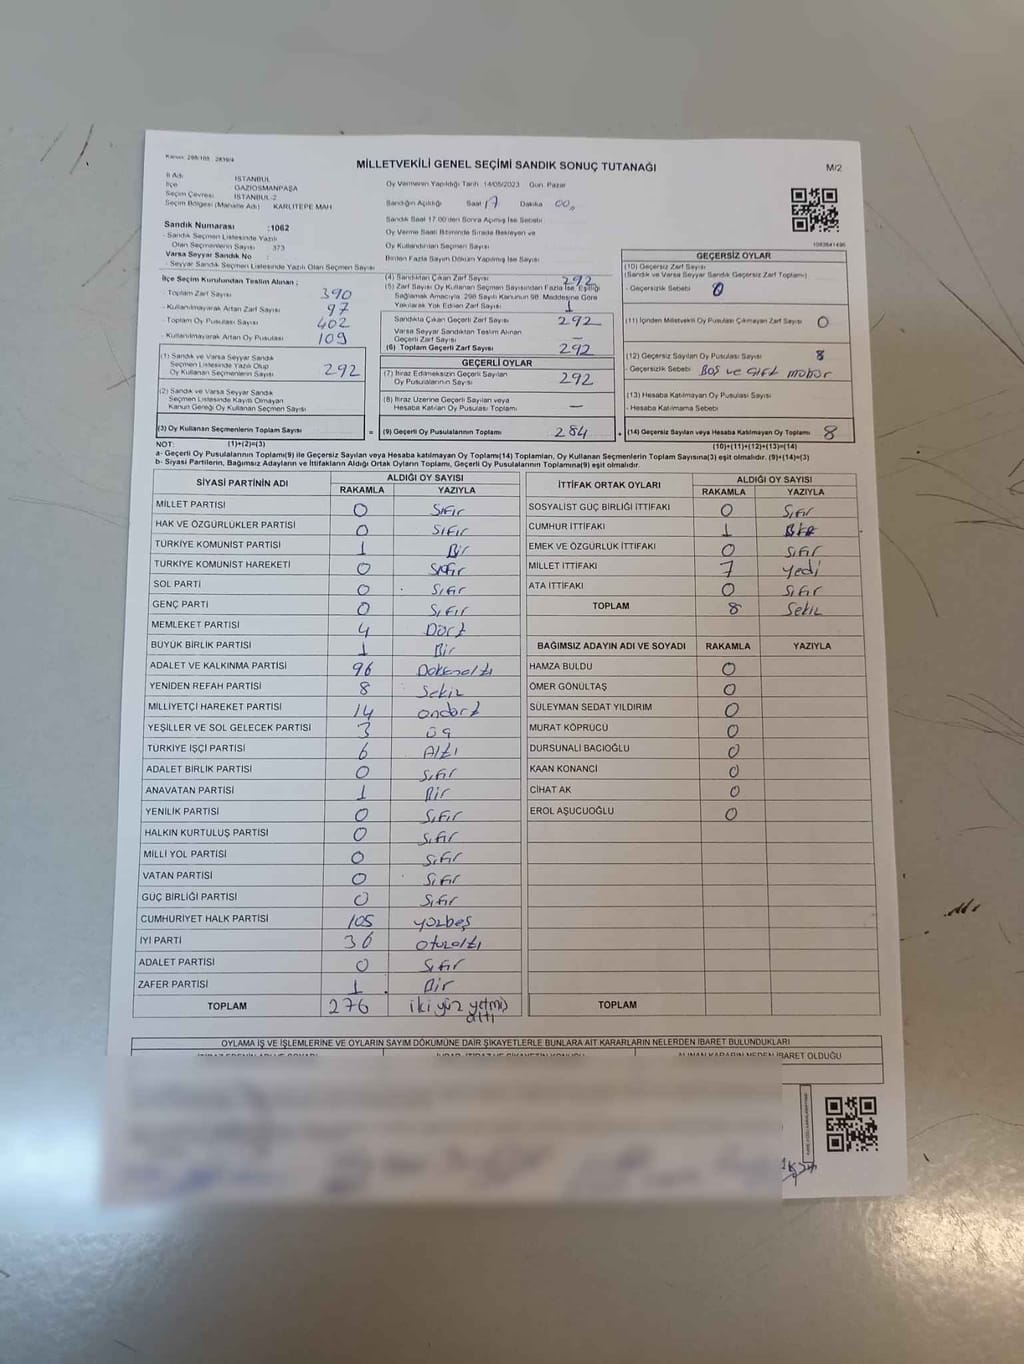 Kanun: 298/105 , 2839/4
MİLLETVEKİLİ GENEL SEÇİMİ SANDIK SONUÇ TUTANAĞI
M/2
İl Adı İSTANBUL
İlçe GAZİOSMANPAŞA
Seçim Çevresi İSTANBUL-2
Seçim Bölgesi (Mahalle Adı) KARLITEPE MAH
Oy Vermenin Yapıldığı Tarih 14/05/2023 Gün: Pazar
Sandığın Açıldığı Saat 17 Dakika 00
Sandık Saat 17.00'den Sonra Açılmış İse Sebebi
Oy Verme Saati Bitiminde Sırada Bekleyen ve
Oy Kullandırılan Seçmen Sayısı
Birden Fazla Sayım Döküm Yapılmış İse Sayısı
Sandık Numarası :1062
- Sandık Seçmen Listesinde Yazılı
Olan Seçmenlerin Sayısı 373
Varsa Seyyar Sandık No
- Seyyar Sandık Seçmen Listesinde Yazılı Olan Seçmen Sayısı
İlçe Seçim Kurulundan Teslim Alınan ;
- Toplam Zarf Sayısı 390
- Kullanılmayarak Artan Zarf Sayısı 97
- Toplam Oy Pusulası Sayısı 402
- Kullanılmayarak Artan Oy Pusulası 109
(1) Sandık ve Varsa Seyyar Sandık
Seçmen Listesinde Yazılı Olup
Oy Kullanan Seçmenlerin Sayısı 292
(2) Sandık ve Varsa Seyyar Sandık
Seçmen Listesinde Kayıtlı Olmayan
Kanun Gereği Oy Kullanan Seçmen Sayısı
(3) Oy Kullanan Seçmenlerin Toplam Sayısı
=
(4) Sandıktan Çıkan Zarf Sayısı 292
(5) Zarf Sayısı Oy Kullanan Seçmen Sayısından Fazla İse, Eşitliği
Sağlamak Amacıyla, 298 Sayılı Kanunun 98. Maddesine Göre
Yakılarak Yok Edilen Zarf Sayısı 1
Sandıkta Çıkan Geçerli Zarf Sayısı 292
Varsa Seyyar Sandıktan Teslim Alınan
Geçerli Zarf Sayısı –
(6) Toplam Geçerli Zarf Sayısı 292
GEÇERLİ OYLAR
(7) İtiraz Edilmeksizin Geçerli Sayılan
Oy Pusulalarının Sayısı 292
(8) İtiraz Üzerine Geçerli Sayılan veya
Hesaba Katılan Oy Pusulası Toplamı –
(9) Geçerli Oy Pusulalarının Toplamı 284
+
1083641496
GEÇERSİZ OYLAR
(10) Geçersiz Zarf Sayısı
(Sandık ve Varsa Seyyar Sandık Geçersiz Zarf Toplamı)
- Geçersizlik Sebebi 0
(11) İçinden Milletvekili Oy Pusulası Çıkmayan Zarf Sayısı 0
(12) Geçersiz Sayılan Oy Pusulası Sayısı 8
- Geçersizlik Sebebi Boş ve çift mühür
(13) Hesaba Katılmayan Oy Pusulası Sayısı
- Hesaba Katılmama Sebebi
(14) Geçersiz Sayılan veya Hesaba Katılmayan Oy Toplamı 8
NOT: (1)+(2)=(3) (10)+(11)+(12)+(13)=(14)
a- Geçerli Oy Pusulalarının Toplamı(9) ile Geçersiz Sayılan veya Hesaba Katılmayan Oy Toplamı(14) Toplamları, Oy Kullanan Seçmenlerin Toplam Sayısına(3) eşit olmalıdır. (9)+(14)=(3)
b- Siyasi Partilerin, Bağımsız Adayların ve İttifakların Aldığı Ortak Oyların Toplamı, Geçerli Oy Pusulalarının Toplamına(9) eşit olmalıdır.
SİYASİ PARTİNİN ADI ALDIĞI OY SAYISI
RAKAMLA YAZIYLA
MİLLET PARTİSİ 0 Sıfır
HAK VE ÖZGÜRLÜKLER PARTİSİ 0 Sıfır
TÜRKİYE KOMÜNİST PARTİSİ 1 Bir
TÜRKİYE KOMÜNİST HAREKETİ 0 Sıfır
SOL PARTİ 0 Sıfır
GENÇ PARTİ 0 Sıfır
MEMLEKET PARTİSİ 4 Dört
BÜYÜK BİRLİK PARTİSİ 1 Bir
ADALET VE KALKINMA PARTİSİ 96 Doksanaltı
YENİDEN REFAH PARTİSİ 8 Sekiz
MİLLİYETÇİ HAREKET PARTİSİ 14 ondört
YEŞİLLER VE SOL GELECEK PARTİSİ 3 üç
TÜRKİYE İŞÇİ PARTİSİ 6 Altı
ADALET BİRLİK PARTİSİ 0 Sıfır
ANAVATAN PARTİSİ 1 Bir
YENİLİK PARTİSİ 0 Sıfır
HALKIN KURTULUŞ PARTİSİ 0 Sıfır
MİLLİ YOL PARTİSİ 0 Sıfır
VATAN PARTİSİ 0 Sıfır
GÜÇ BİRLİĞİ PARTİSİ 0 Sıfır
CUMHURİYET HALK PARTİSİ 105 yüzbeş
İYİ PARTİ 36 otuzaltı
ADALET PARTİSİ 0 Sıfır
ZAFER PARTİSİ 1 Bir
TOPLAM 276 iki yüz yetmiş altı
İTTİFAK ORTAK OYLARI ALDIĞI OY SAYISI
RAKAMLA YAZIYLA
SOSYALİST GÜÇ BİRLİĞİ İTTİFAKI 0 Sıfır
CUMHUR İTTİFAKI 1 Bir
EMEK VE ÖZGÜRLÜK İTTİFAKI 0 Sıfır
MİLLET İTTİFAKI 7 yedi
ATA İTTİFAKI 0 Sıfır
TOPLAM 8 Sekiz
BAĞIMSIZ ADAYIN ADI VE SOYADI RAKAMLA YAZIYLA
HAMZA BULDU 0
ÖMER GÖNÜLTAŞ 0
SÜLEYMAN SEDAT YILDIRIM 0
MURAT KÖPRÜCÜ 0
DURSUNALİ BACIOĞLU 0
KAAN KONANCI 0
CİHAT AK 0
EROL AŞUCUOĞLU 0
TOPLAM
OYLAMA İŞ VE İŞLEMLERİNE VE OYLARIN SAYIM DÖKÜMÜNE DAİR ŞİKAYETLERLE BUNLARA AİT KARARLARIN NELERDEN İBARET BULUNDUKLARI
ALINAN KARARIN NEDEN İBARET OLDUĞU